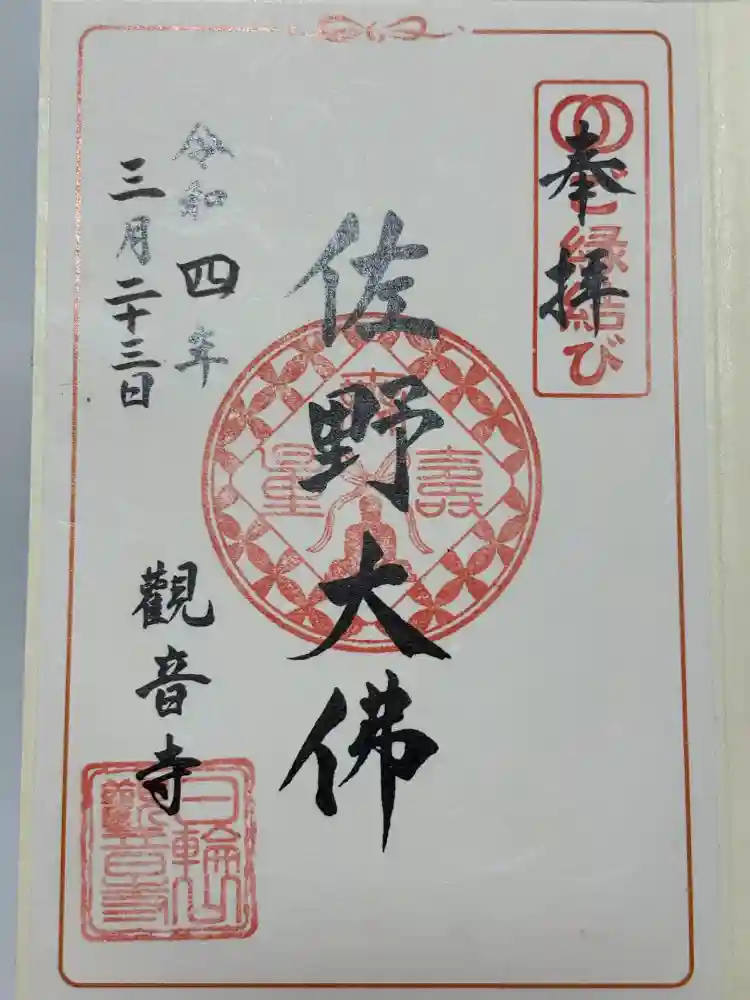 奉拝
ご縁結び
佐野大佛
無量壽
令和四年
三月二十三日
觀音寺
日輪山
觀音寺